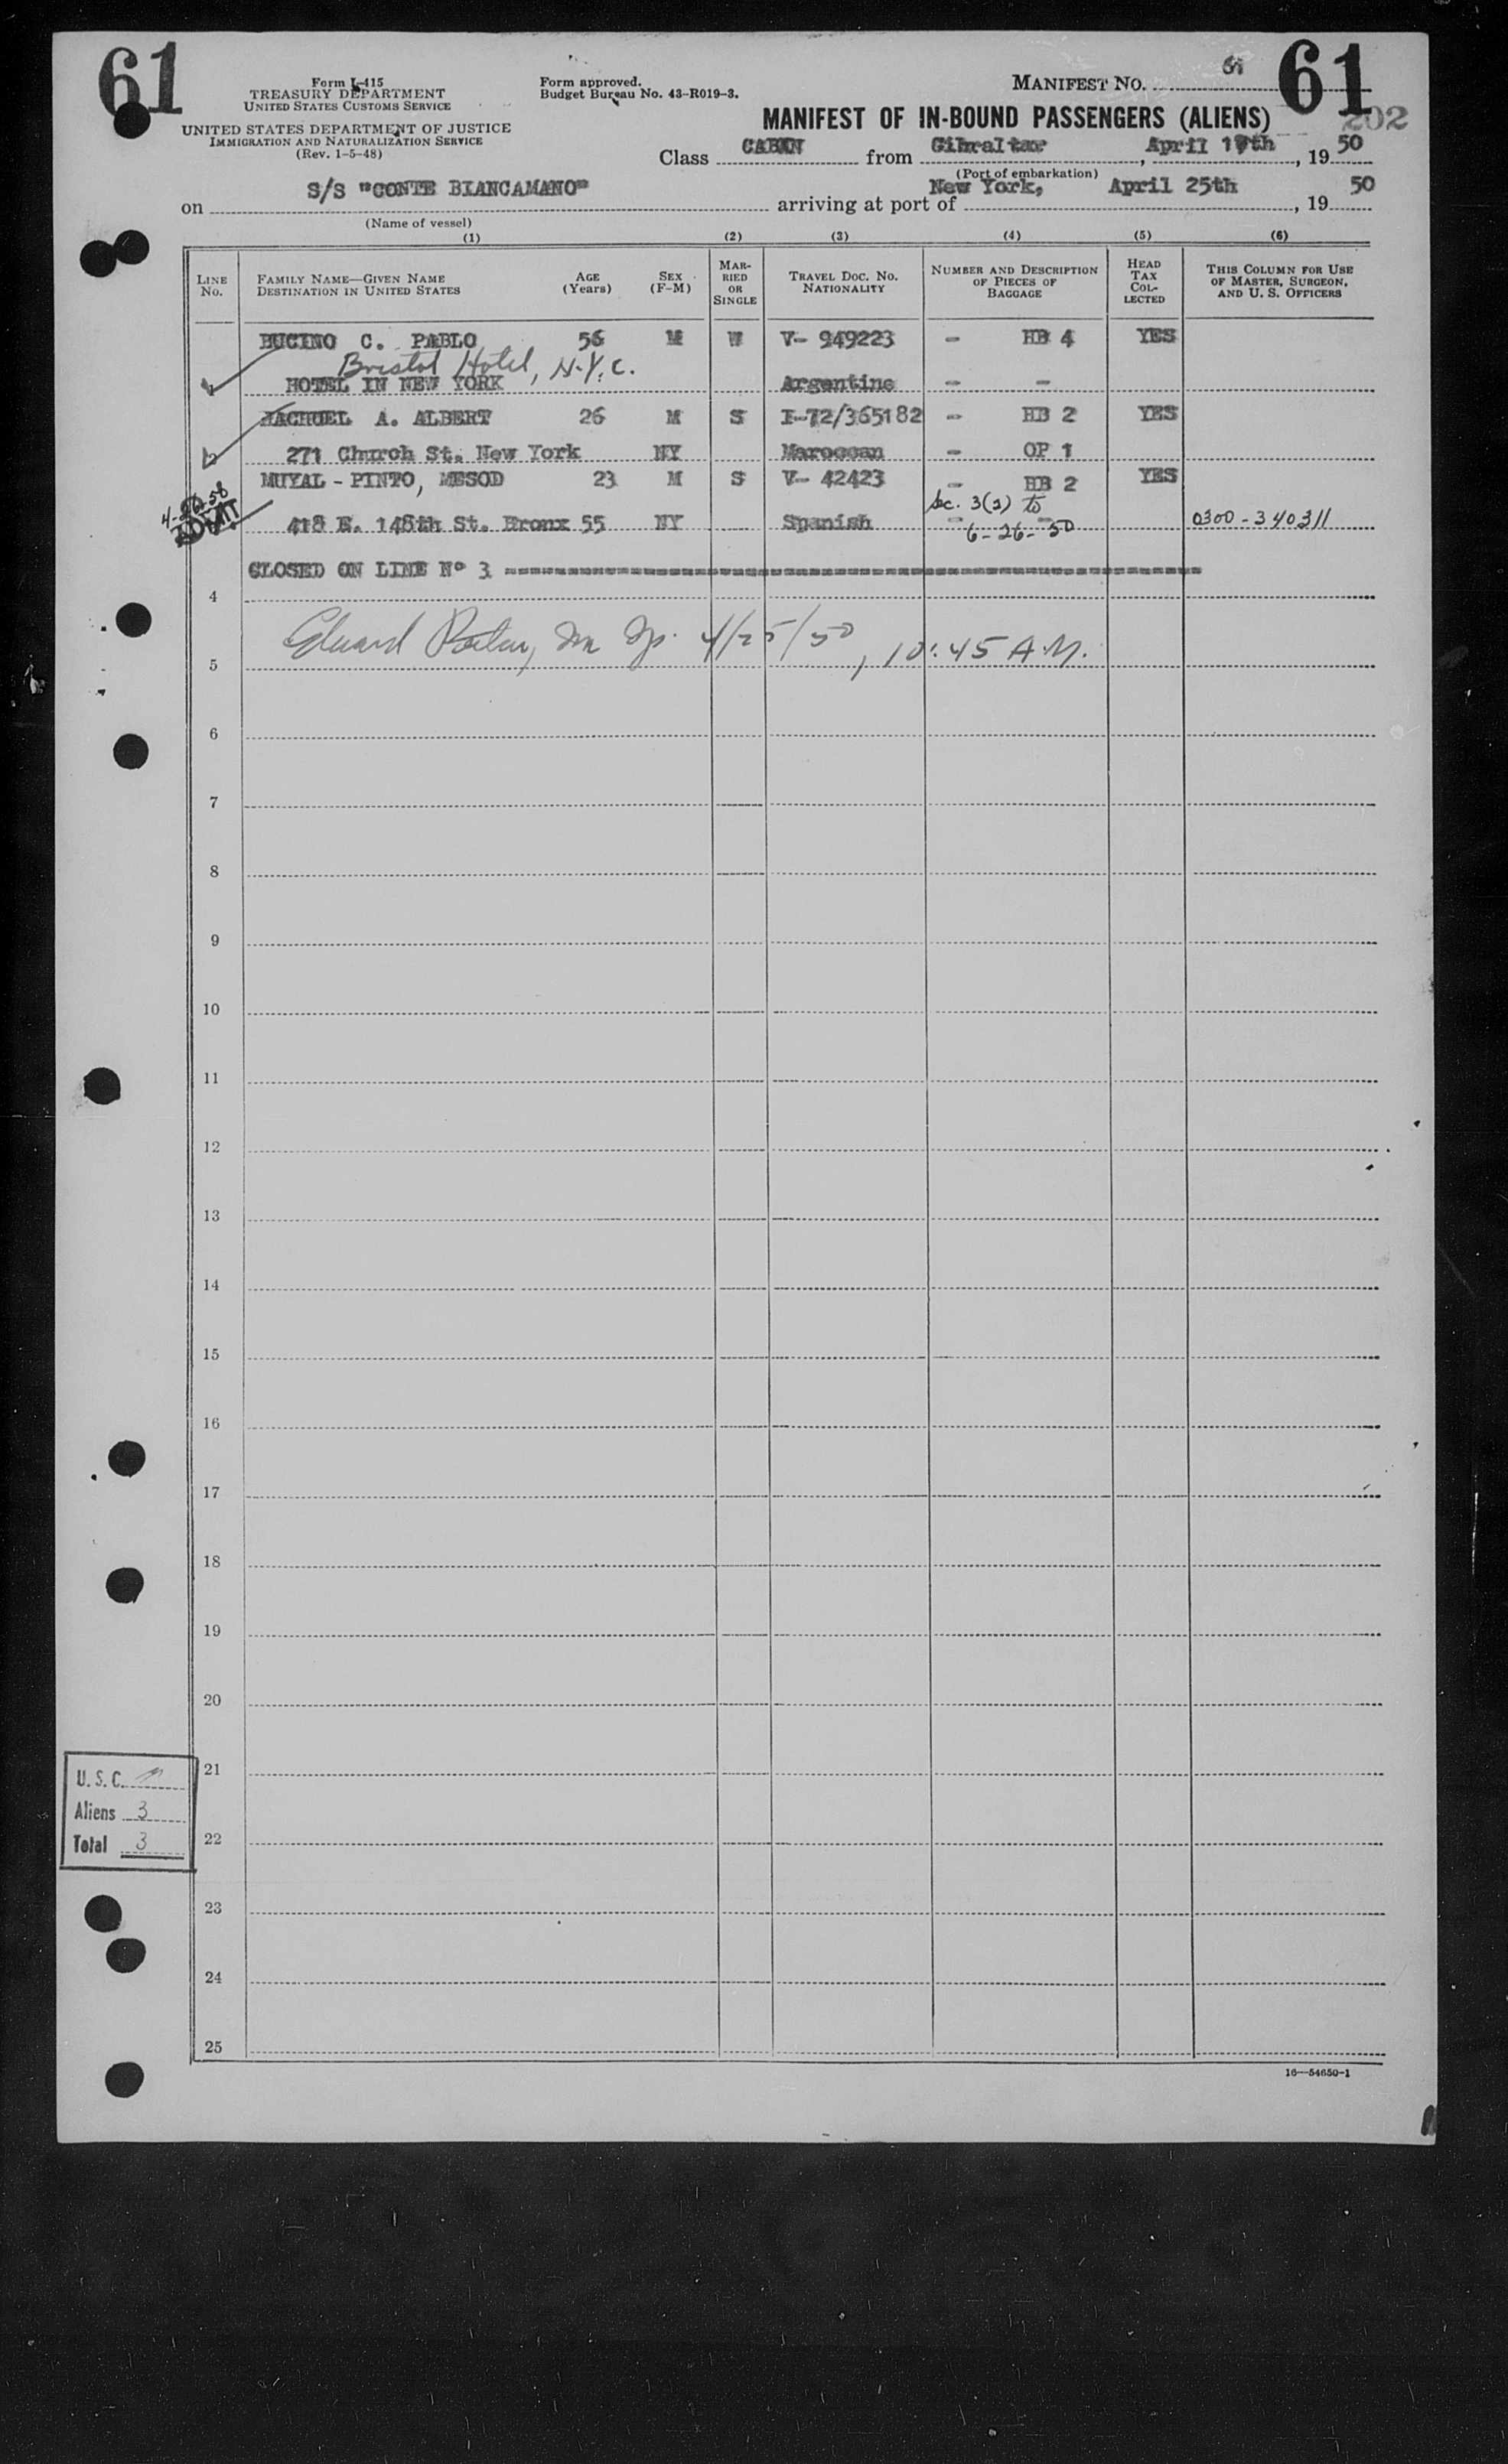 61
Form I-415
TREASURY DEPARTMENT
UNITED STATES CUSTOMS SERVICE
UNITED STATES DEPARTMENT OF JUSTICE
IMMIGRATION AND NATURALIZATION SERVICE
(Rev. 1-5-48)
Form approved.
Budget Bureau No. 43-R019-3.
MANIFEST NO. 61
61
202
MANIFEST OF IN-BOUND PASSENGERS (ALIENS)
Class CABIN from Gibraltar, April 17th, 1950
(Port of embarkation)
on S/S "CONTE BIANCAMANO" arriving at port of New York, April 25th, 1950
(Name of vessel)
(1) (2) (3) (4) (5) (6)
LINE No. FAMILY NAME—GIVEN NAME DESTINATION IN UNITED STATES AGE (Years) SEX (F-M) MARRIED OR SINGLE TRAVEL DOC. NO. NATIONALITY NUMBER AND DESCRIPTION OF PIECES OF BAGGAGE HEAD TAX COLLECTED THIS COLUMN FOR USE OF MASTER, SURGEON, AND U. S. OFFICERS
BUCINO C. PABLO 56 M W V- 949223 - HB 4 YES
Bristol Hotel, N.Y.C.
HOTEL IN NEW YORK Argentine - -
A. ALBERT 26 M S I-72/365182 - HB 2 YES
271 Church St. New York NY Maroccan - OP 1
MUYAL - PINTO, MESOD 23 M S V- 42423 - HB 2 YES
Sec. 3(2) to
ADMIT
418 E. 148th St. Bronx 55 NY Spanish - - 0300-340311
6-26-50
CLOSED ON LINE Nº 3
4
4/25/50, 10:45 A.M.
5
6
7
8
9
10
11
12
13
14
15
16
17
18
19
20
21
U. S. C.
Aliens 3
Total 3
22
23
24
25
16—54650-1